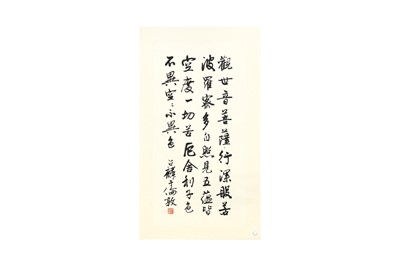 觀世音菩薩行深般若
波羅蜜多自照見五蘊皆
空度一切苦厄舍利子色
不異空〻不異色
于倫敦